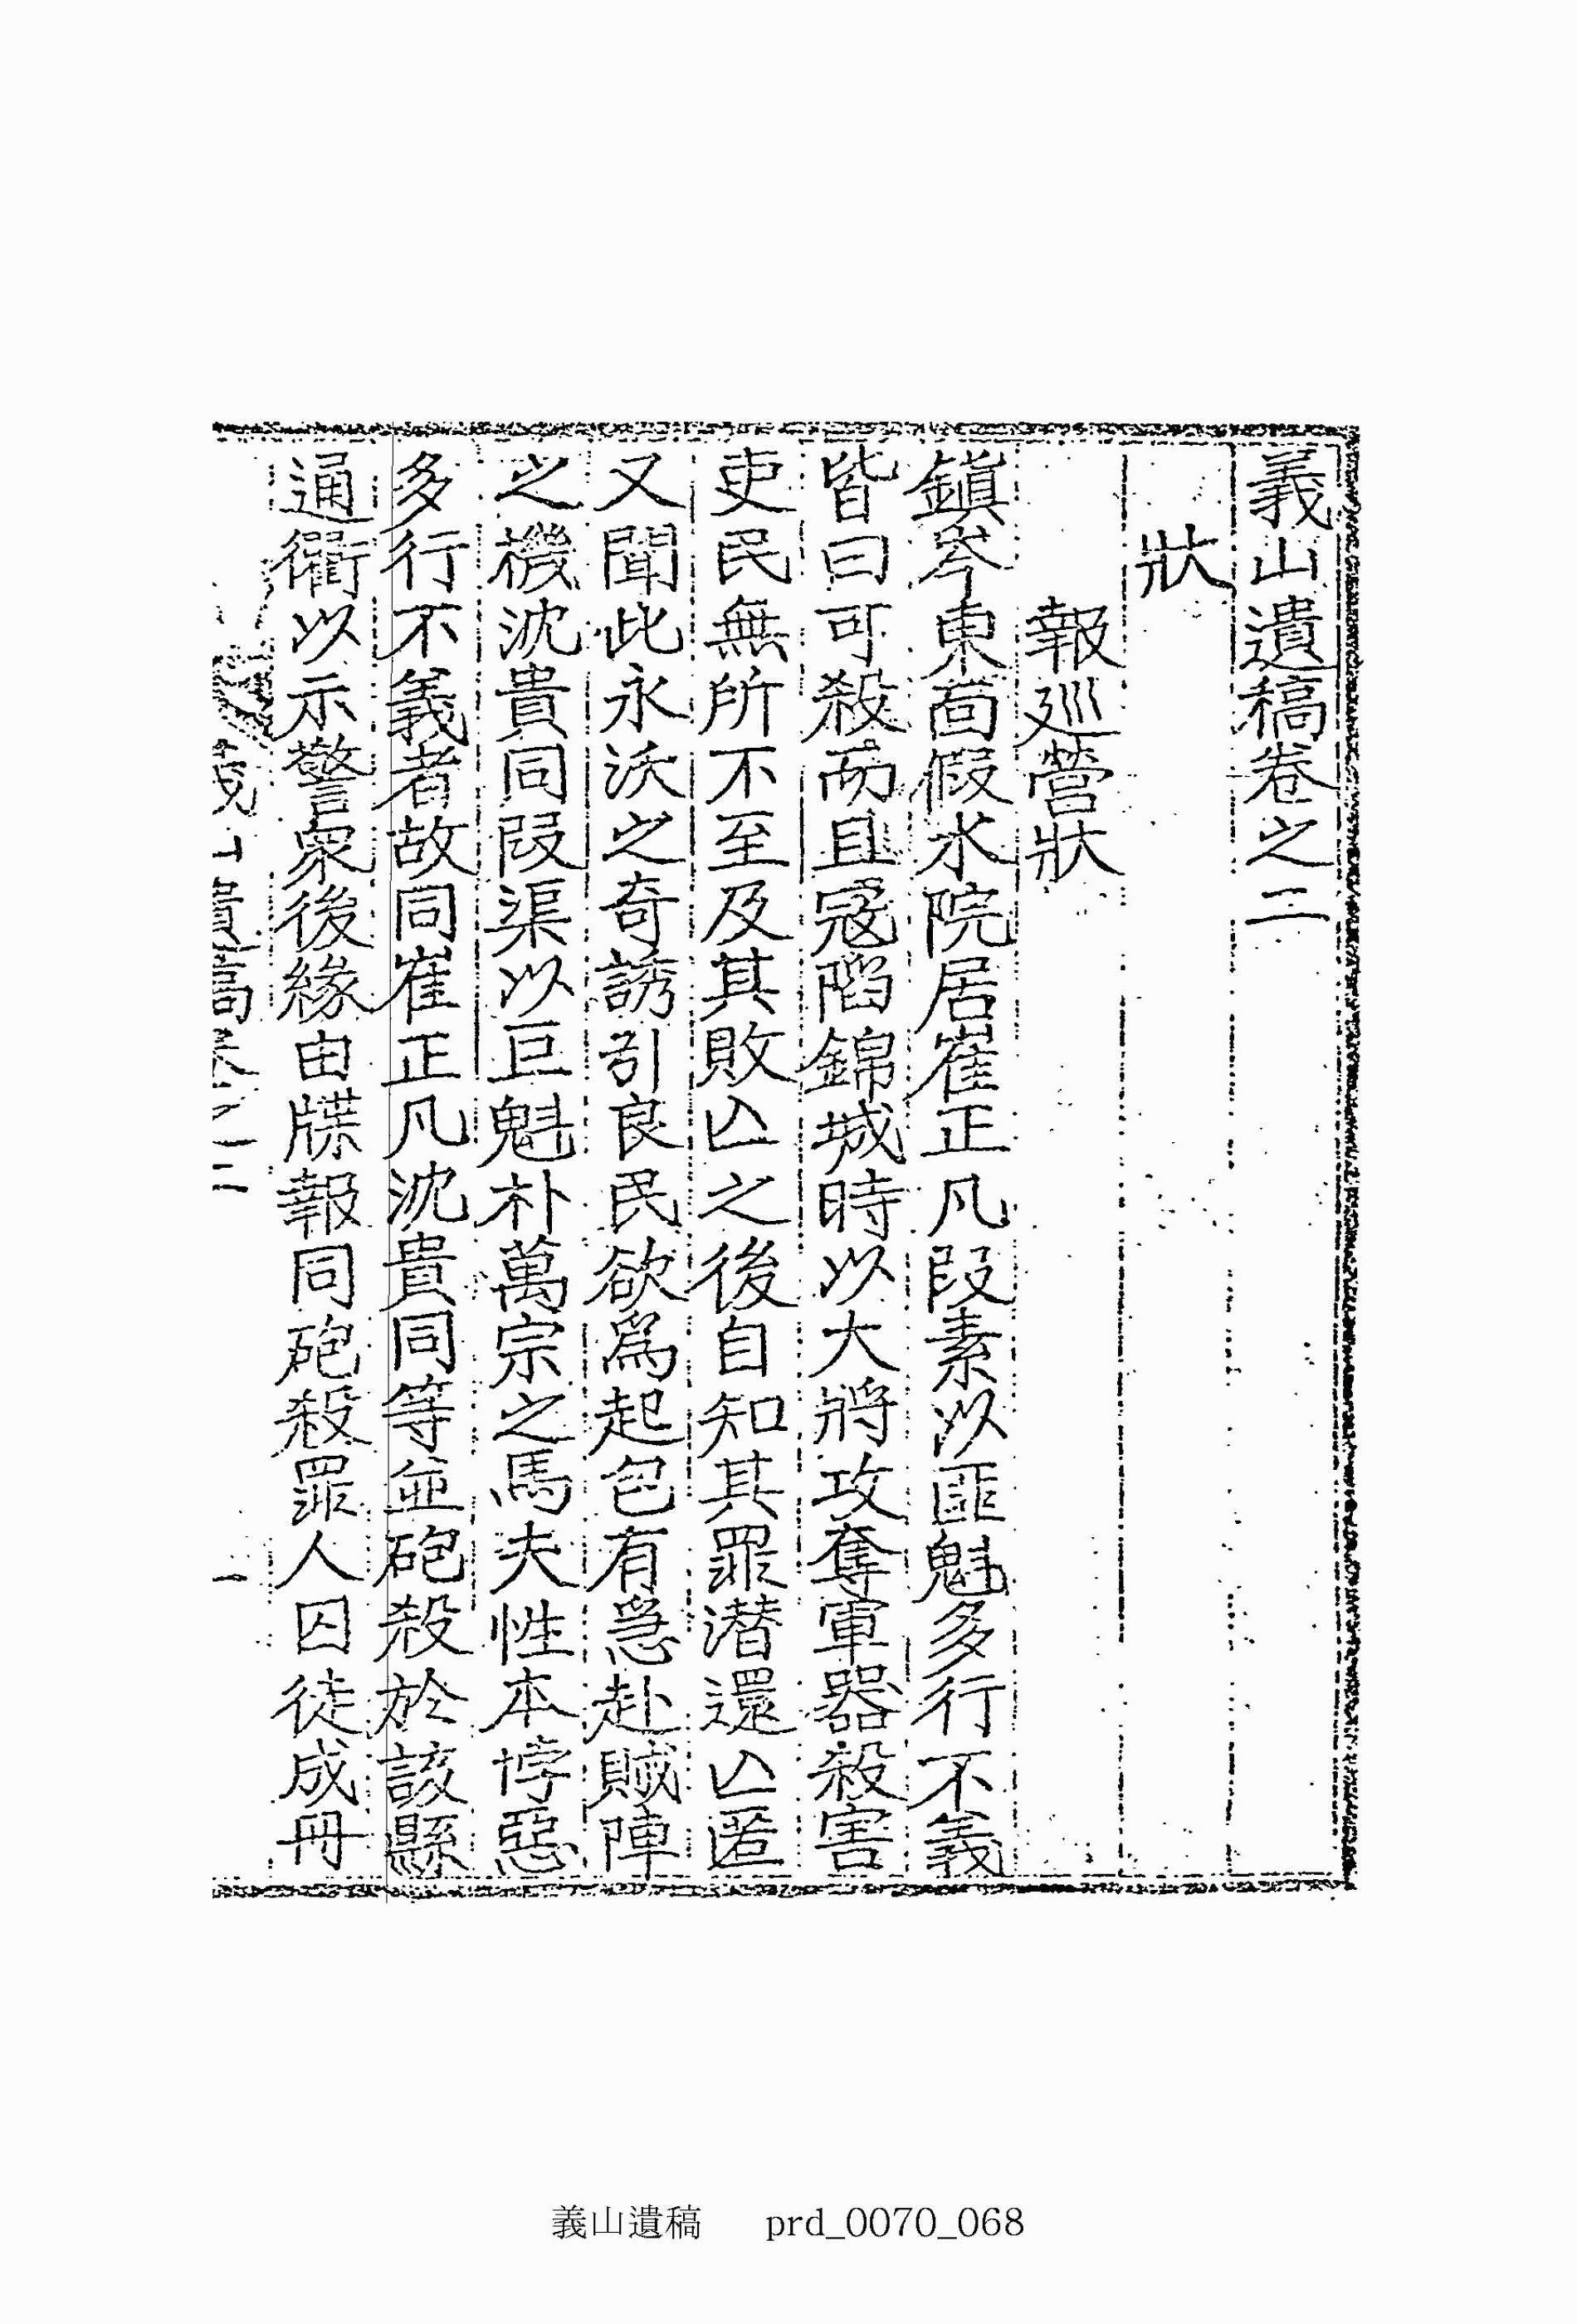 義山遺稿卷之二
狀
報巡營狀
鎭岑東面假水院居崔正凡段素以匪魁多行不義
皆曰可殺𠕅且寇陷錦城時以大將攻奪軍器殺害
吏民無所不至及其敗亾之後自知其罪潛還亾匿
又聞此永沃之奇誘引良民欲爲起包有急赴賊陣
之機沈貴同段渠以巨魁朴萬宗之馬夫性本悖惡
多行不義者故同崔正凡沈貴同等並砲殺於該縣
通衢以示警衆後緣由牒報同砲殺罪人囚徒成冊
義山遺稿卷之二 一
義山遺稿 prd_0070_068